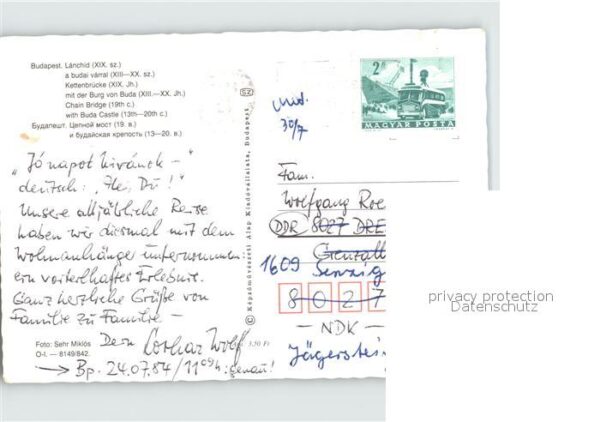 Budapest. Lánchíd (XIX. sz.)
a budai várral (XIII—XX. sz.)
Kettenbrücke (XIX. Jh.)
mit der Burg von Buda (XIII.—XX. Jh.)
Chain Bridge (19th c.)
with Buda Castle (13th—20th c.)
Будапешт. Цепной мост (19. в.)
и будайская крепость (13—20. в.)
"Jó napot kivánok –"
deutsch: "Hei, Du!"
Unsere alljährliche Reise
haben wir diesmal mit dem
Wohnanhänger unternommen:
ein vorteilhaftes Erlebnis.
Ganz herzliche Grüße von
Familie zu Familie –
Dein Lothar Wolf
Foto: Sehr Miklós
O-I. — 8149/842.
→ Bp. 24.07.84 / 11 09h: genau!
SZ
© Képzőművészeti Alap Kiadóvállalata, Budapest
3,20 Ft
2 Ft
MAGYAR POSTA
30/7
Fam.
Wolfgang Roe
DDR 8027 DRE
1609
8027
— NDK —
Jägerstei
privacy protection
Datenschutz